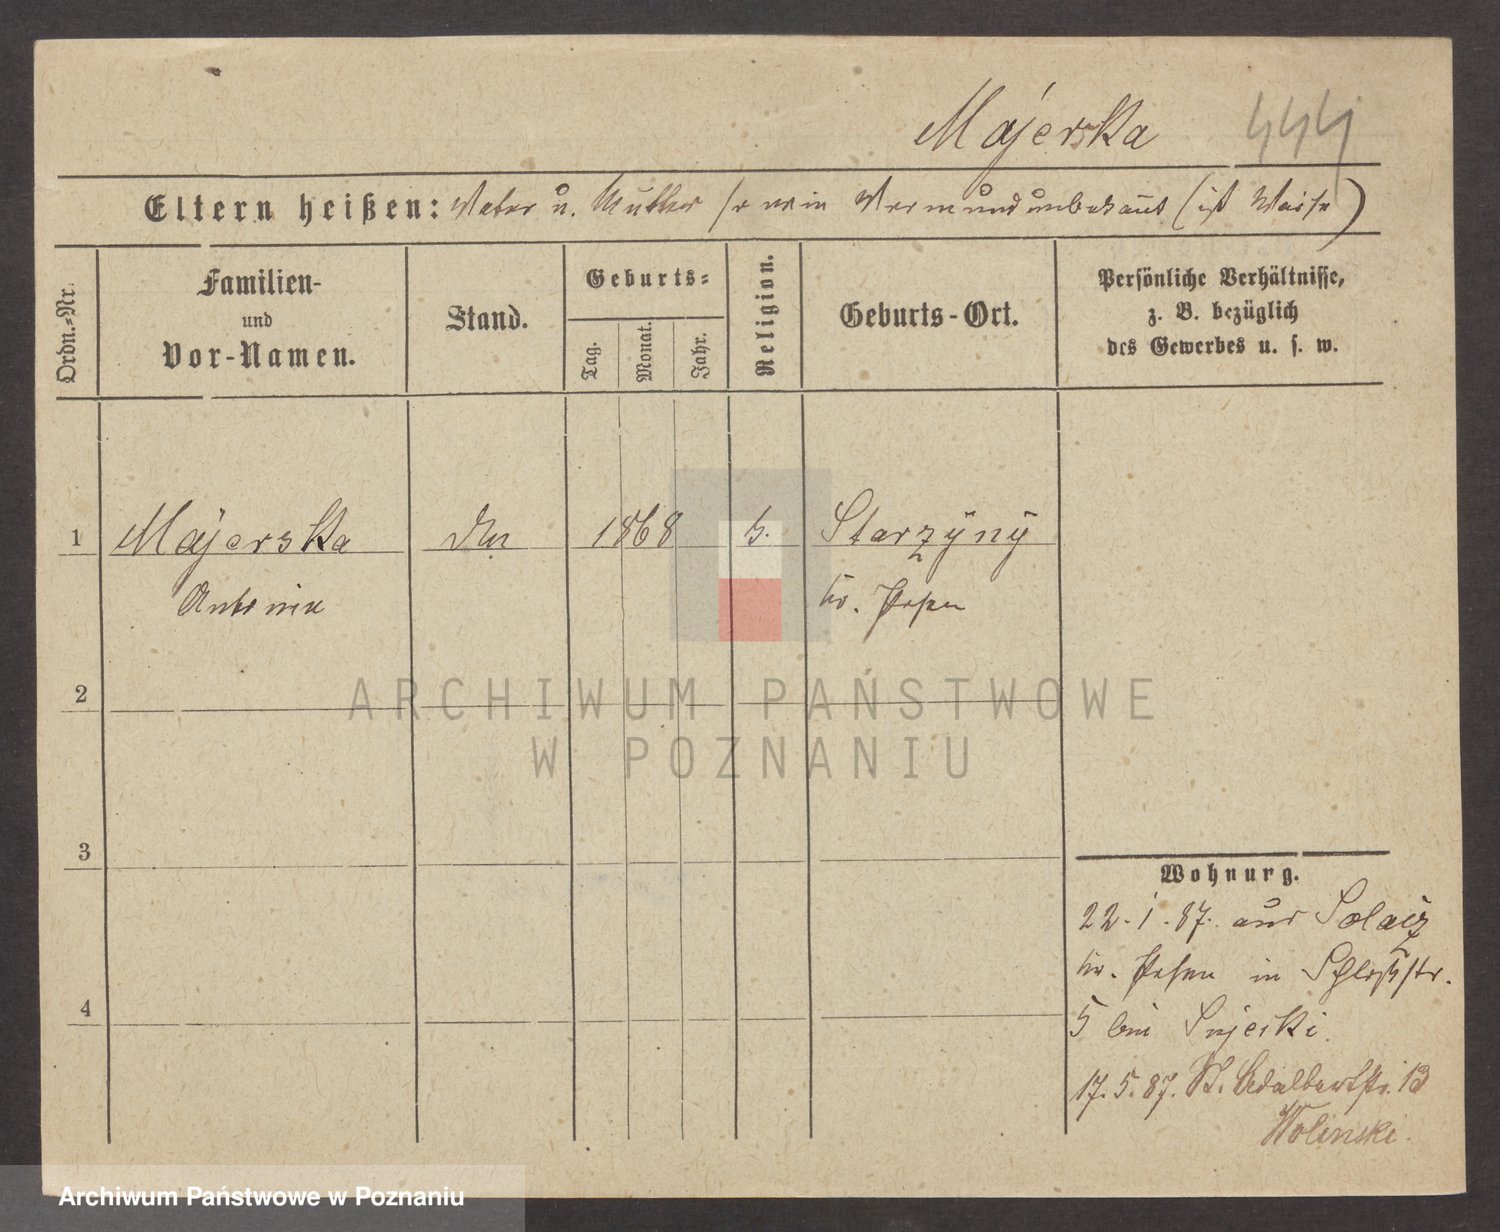 Majerska 444
Eltern heißen: Vater u. Mutter sowie Vormund unbekannt (ist Waise)
Ordn.=Nr.
Familien-
und
Vor-Namen.
Stand.
Geburts=
Tag.
Monat.
Jahr.
Religion.
Geburts-Ort.
Persönliche Verhältnisse,
z. B. bezüglich
des Gewerbes u. s. w.
1 Majerska 1868 k. Starzyny
Antonina Kr. Posen
2
3
4
Wohnung.
22. 1. 87. aus Solacz
Kr. Posen in Schloßstr.
5 bei
17. 5. 87. St. Adalbertstr. 13
Wolinski.
ARCHIWUM PAŃSTWOWE
W POZNANIU
Archiwum Państwowe w Poznaniu